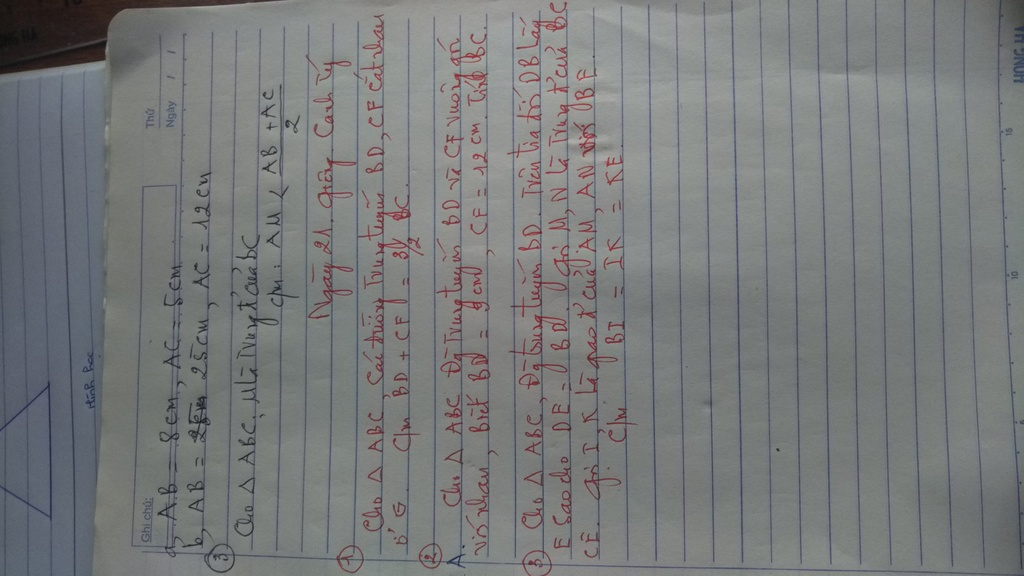 Thứ
Ngày
Ghi chú:
a, AB = 8cm, AC = 5cm
b, AB = 25cm, AC = 12cm
③ Cho △ ABC, M là trung t² của BC
Cpm: AM < AB + AC / 2
Ngày 21. giêng. Canh Tý
① Cho △ ABC, Các đường trung tuyến BD, CF cắt nhau
ở G. Cpm BD + CF = 3/2 BC.
② Cho △ ABC đg trung tuyến BD và CF vuông góc
A.
với nhau, Biết BD = 9cm, CF = 12 cm. Tính BC.
③ Cho △ ABC, Đg trung tuyến BD. Trên tia đối DB lấy
E sao cho DE = BD. Gọi M, N là trung t² của BC
CE. Gọi I, K là giao t² của AM, AN với BE.
Cpm: BI = IK = KE
HONG HA